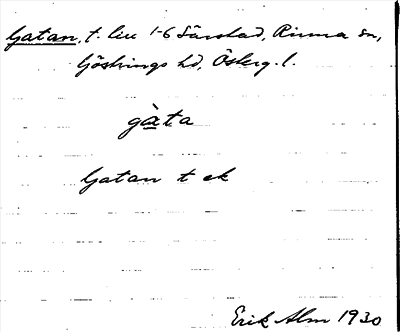 Gatan, t. liu 1-6 Sänstad, Rinna sn,
Göstrings hd, Österg. l.
gàta
Gatan t ek
Erik Alm 1930